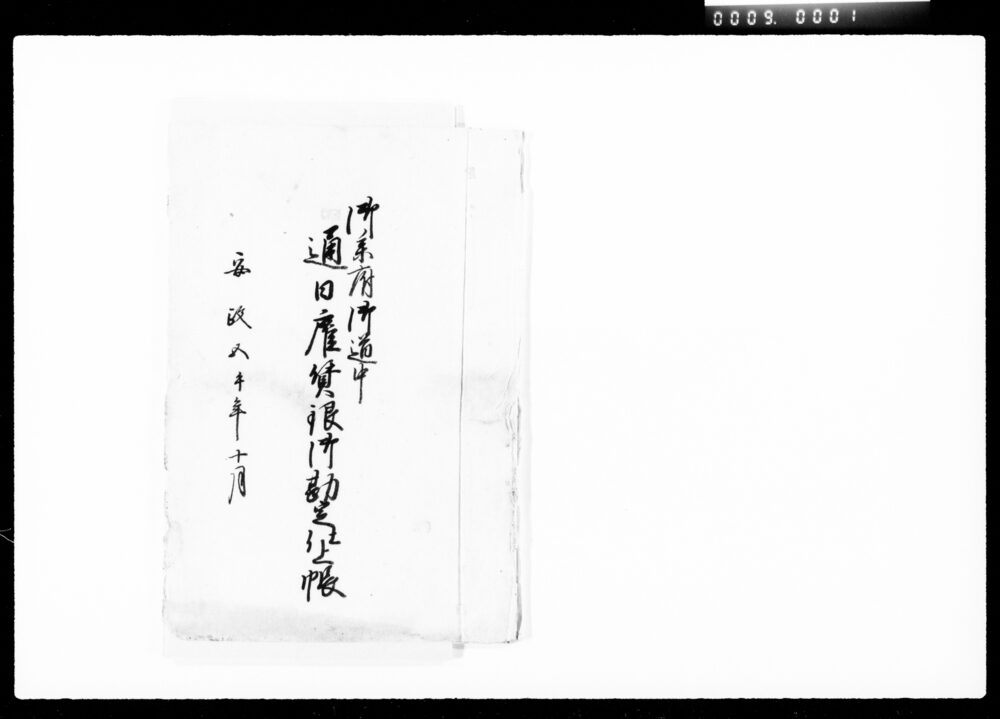 0009.0001
御参府御道中
通日雇賃銀御勘定仕上帳
安政五午年十月